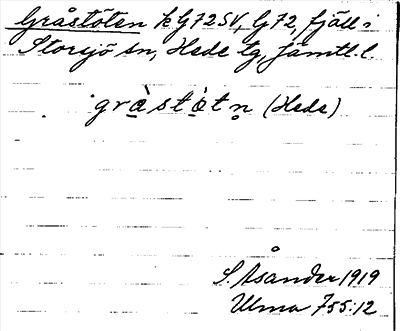 Gråstöten k G72SV, G72, fjäll i
Storsjö sn, Hede tg, Jämtl. l.
grå̱̀sto̱̊̀tn̥ (Hede)
S. Åsander 1919
Ulma 755:12